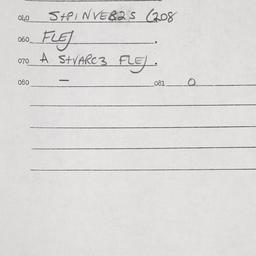 040 S+PINVEB2S (208
060 FLEJ .
070 A S+VARC3 FLEJ.
080 — 081 O